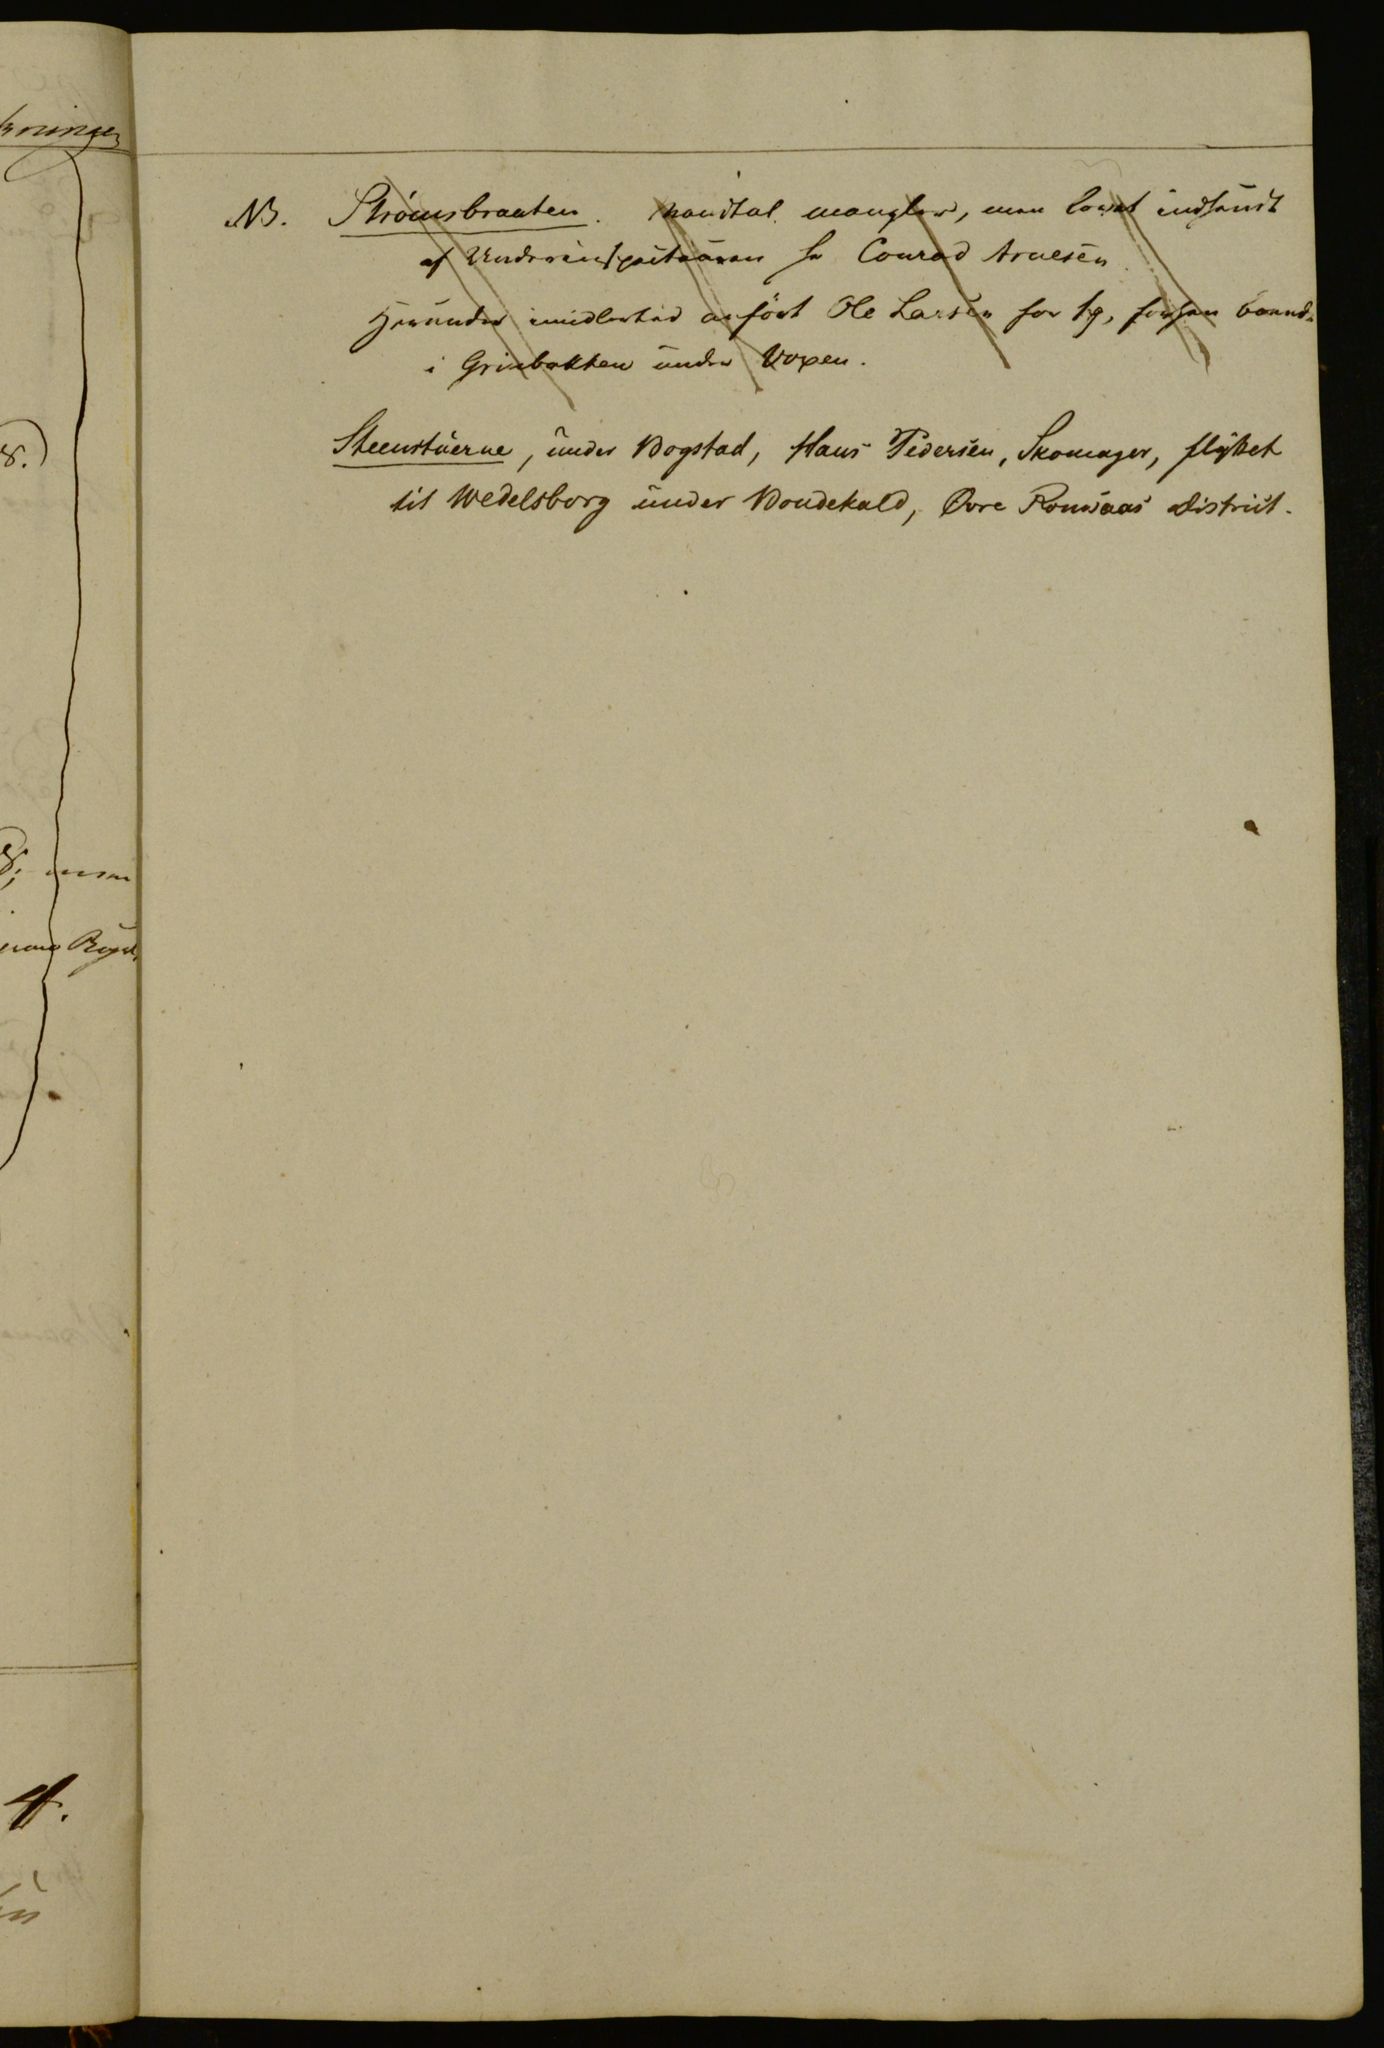 NB. Strömsbraaten. Mandtal mangler, men lovet indsendt
af Underinspecteuren Hr Conrad Arnesen
Herunder imidlertid anfört Ole Larsen for 19, forhen boende
i Grinibakken under Voxen.
Steenstuerne, under Bogstad, Hans Pedersen, Skomager, flyttet
til Wedelsborg under Bondekald, Øvre Romsaas District.
8.)
Bogst.
4.